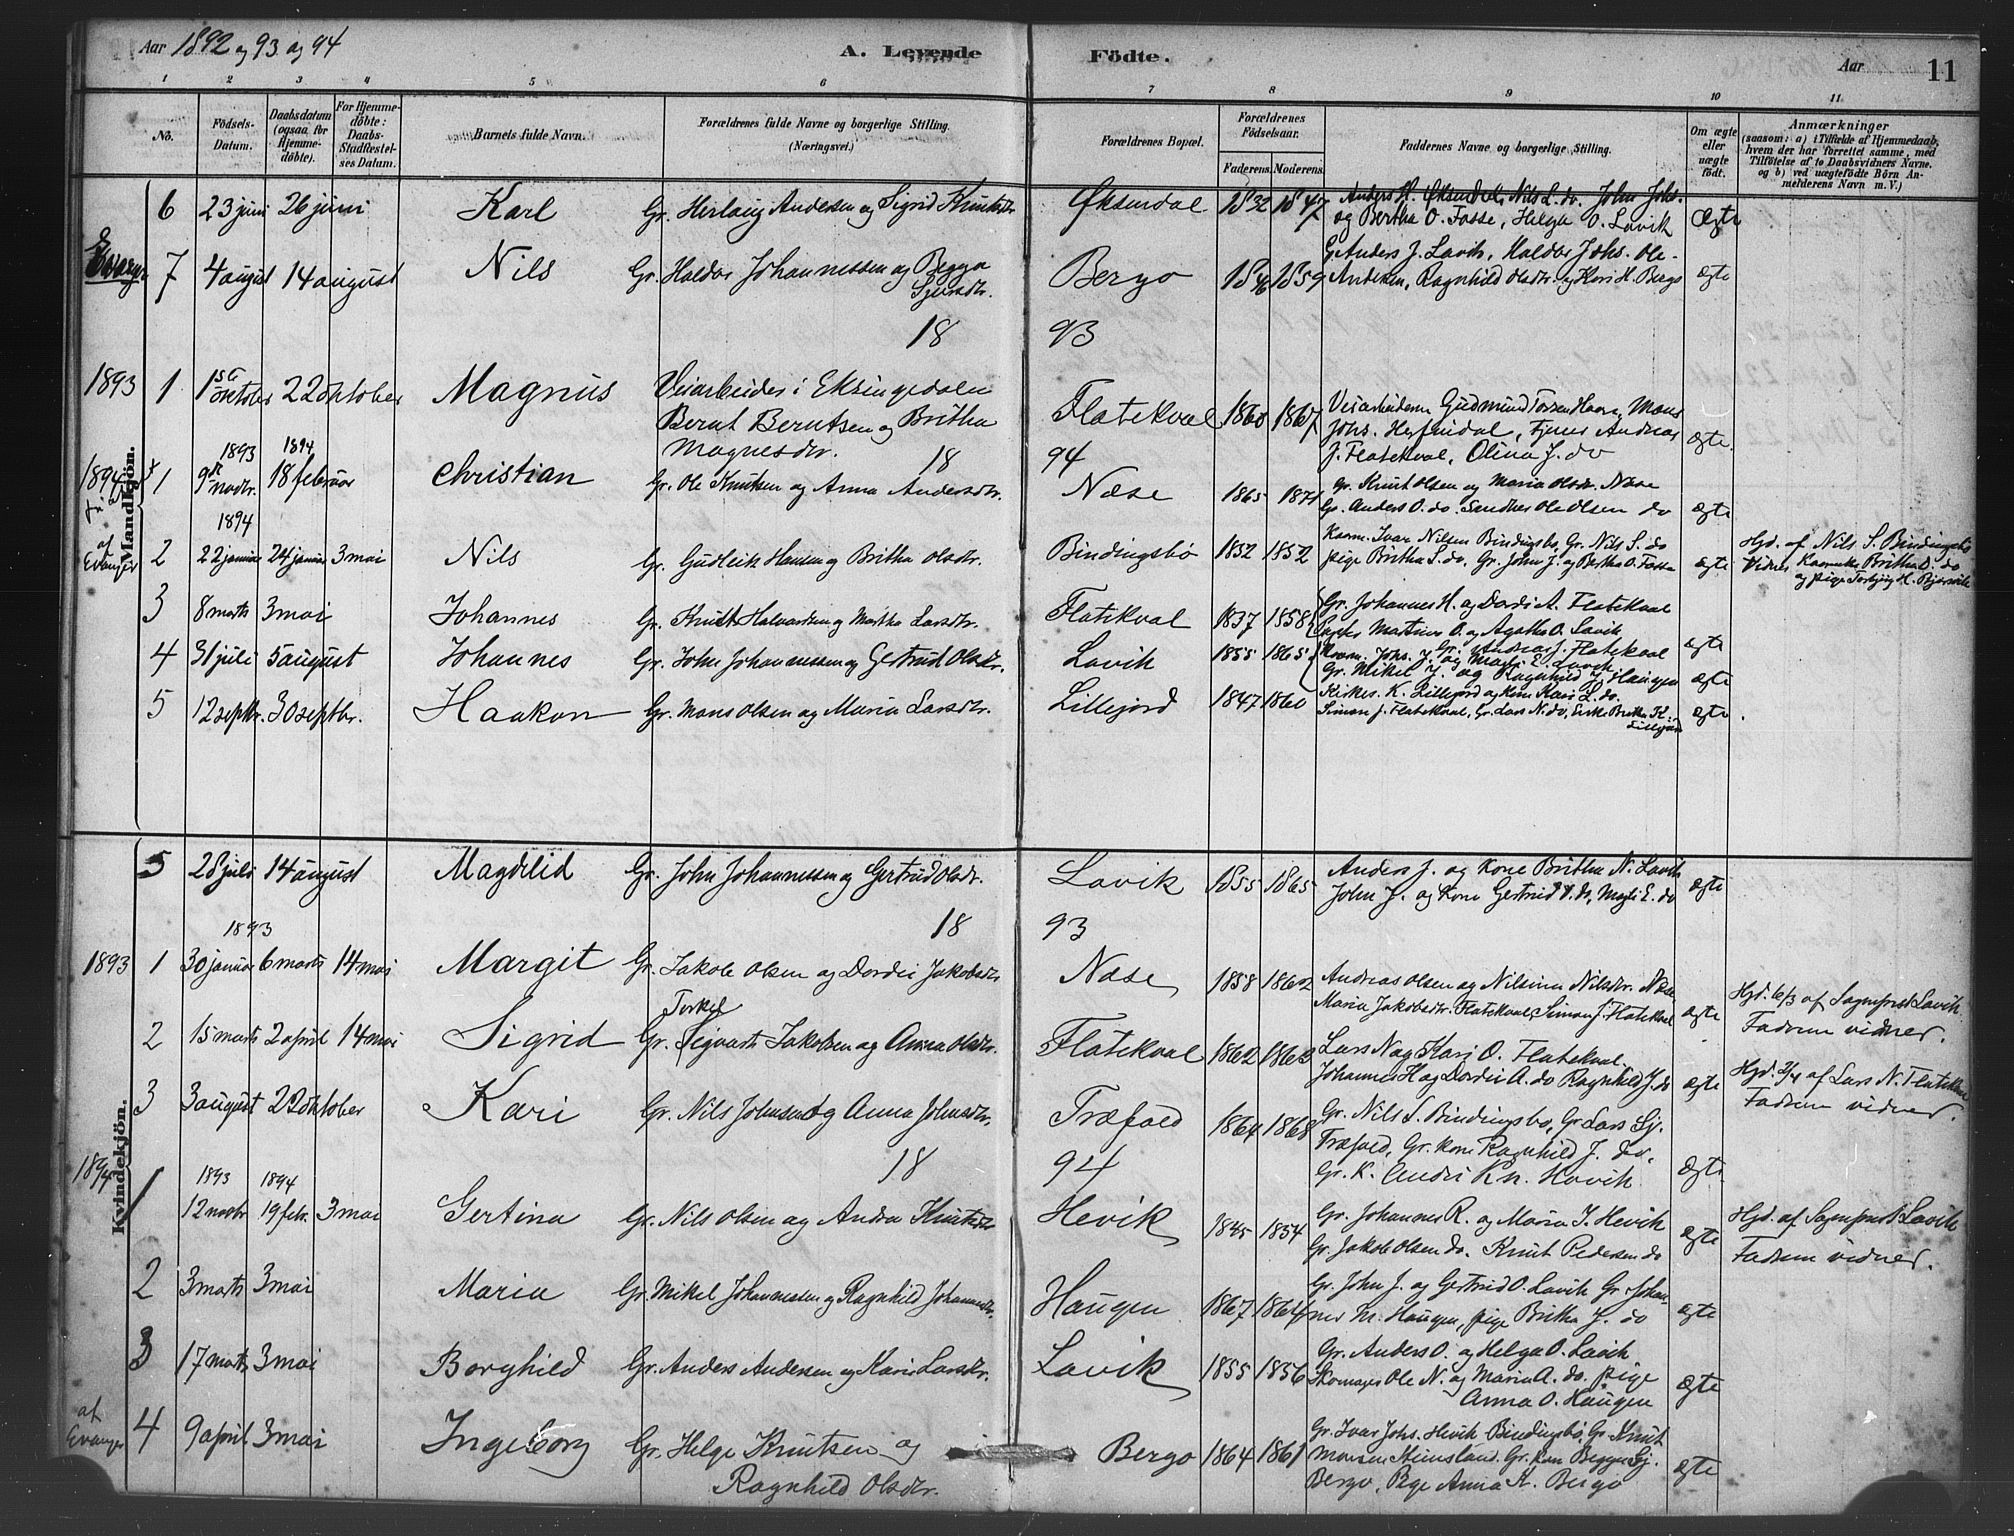 Aar 1892 og 93 og 94
A. Levende Födte.
Aar 11
1 2 3 4 5 6 7 8 9 10 11
Nö.
Födsels-Datum.
Daabsdatum (ogsaa for Hjemmedöbte).
For Hjemmedöbte: Daabs-Stadfestelses Datum.
Barnets fulde Navn.
Forældrenes fulde Navne og borgerlige Stilling. (Næringsvei.)
Forældrenes Bopæl.
Forældrenes Födselsaar.
Faderens. Moderens.
Faddernes Navne og borgerlige Stilling.
Om ægte eller uægte födt.
Anmærkninger
(saasom: a) i Tilfælde af Hjemmedaab, hvem der har forrettet samme, med Tilföielse af to Daabsvidners Navne, og b) ved uægtefödte Börn Anmelderens Navn m. V.)
Mandkjön.
6 23 juni 26 juni Karl Gr. Herlaug Andersen og Sigrid Knutsdtr Øksendal 1832 1847 Anders H. Øksendal, Nils L. do. John Johs. Ægte
og Bertha O. Fosse, Helga O. Lavik
7 4 august 14 august Nils Gr. Haldor Johannessen og Begga Bergo 1859 Gr. Anders J. Lavik, Haldor Johs. Ole ægte
Sjursdtr. Andersen, Ragnhild Olsdtr og Kari H. Bergo
18 93
1893 1 1ste oktober 22 oktober Magnus Veiarbeider i Eksingedalen Flatekval 1860 1867 Veiarbeiderne Gudmund ægte
Bernt Berntsen og Britha Johs. Andreas
Magnesdtr. J. Flatekval, Olina J. do
18 94
1893 1894
1894 1 9de novbr. 18 februar Christian Gr. Ole Knutsen og Anna Andersdtr. Næse 1865 1871 Gr. Knut Olsen og Maria Olsdr. Næse ægte
Gr. Anders O. do. Ole Olsen do
1894
af Evanger 2 22 januar 24 januar 3 mai Nils Gr. Gudleik Hansen og Britha Olsdtr. Bindingsbø 1832 1852 Kaarm. Ivar Nilsen Bindingsbø, Gr. Nils S. do ægte Hjd. af Nils S. Bindingsbø
pige Britha S. do. Gr. John J. og Bertha O. Fosse Vidner Britha O. do
og pige Torbjørg H.
3 8 marts 3 mai Johannes Gr. Knut Halvardsen og Martha Larsdtr. Flatekval 1837 1858 Gr. Johannes H. og Dordi A. Flatekval ægte
Martinus O. og Agatha O. Lavik
4 31 juli 5 august Johannes Gr. John Johannessen og Gertrud Olsdtr. Lavik 1855 1865 Gr. Andreas J. Flatekval ægte
Johs. J. og Magli E. Lavik
Gr. Mikel J. og Ragnhild J. Haugen
5 12 septbr. 30 septbr. Haakon Gr. Mons Olsen og Maria Larsdtr. Lillejord 1847 1860 K. Lillejord og kone Kari L. do. ægte.
Simon J. Flatekval, Gr. Lars N. do, Enke Britha K. Lillejord
Kvindekjön.
5 28 juli 14 august Magdelid Gr. John Johannessen og Gertrud Olsdr. Lavik 1855 1865 Anders J. og kone Britha N. Lavik ægte
John J. og kone Gertrud O. do, Magli E. do
18 93
1893
1893 1 30 januar 6 marts 14 mai Margit Gr. Jakob Olsen og Dordei Jakobsdtr Næse 1858 1862 Andreas Olsen og Nilsina Nilsdtr. Næse ægte Hjd. 6/3 af Sogneprest Lavik.
Maria Jakobsdtr. Flatekval, Simon J. Flatekval Faderne vidner.
Torkel
2 15 marts 2 april 14 mai Sigrid Gr. Sigvart Jakobsen og Anna Olsdtr. Flatekval 1862 1863 Lars N. og Kari O. Flatekval. ægte Hjd. 2/4 af Lars N. Flatekval
Johannes H. og Dordei A. do Ragnhild J. do Faderne vidner.
3 3 august 22 oktober Kari Gr. Nils Johnsen og Anna Johnsdtr. Træfald 1864 1868 Gr. Nils S. Bindingsbø, Gr. Lars Sj. ægte
Træfald, Gr. kone Ragnhild J. do.
Gr. K. Andri Kn. Hovik.
18 94
1894 1893 1894
1 12 novbr 19 febr. 3 mai Gertina Gr. Nils Olsen og Andra Knutsdtr Hevik 1845 1854 Gr. Johannes R. og Maria J. Hevik ægte Hjd. af Sogneprest Lavik
Gr. Jakob Olsen do. Knut Pedersen do Faderne vidner.
2 3 marts 3 mai Maria Gr. Mikel Johannessen og Ragnhild Johannesdtr. Haugen 1867 1864 Gr. John J. og Gertrud O. Lavik Gr. Johan- ægte
nes M. Haugen, pige Britha J. do
3 17 marts 3 mai Borghild Gr. Anders Andersen og Kari Larsdtr. Lavik 1855 1856 Gr. Anders O. og Helga O. Lavik ægte
Skomager Ole N. og Maria A. do. pige
Anna O. Haugen
af Evanger 4 9 april 3 mai Ingeborg Gr. Helge Knutsen og Bergo 1864 1861 Gr. Ivar Johs. Hevik Bindingsbø, Gr. Knut ægte
Ragnhild Olsdtr. Monsen Steinsland. Gr. kon Begga Sj.
Bergo, Pige Anna K. Bergo